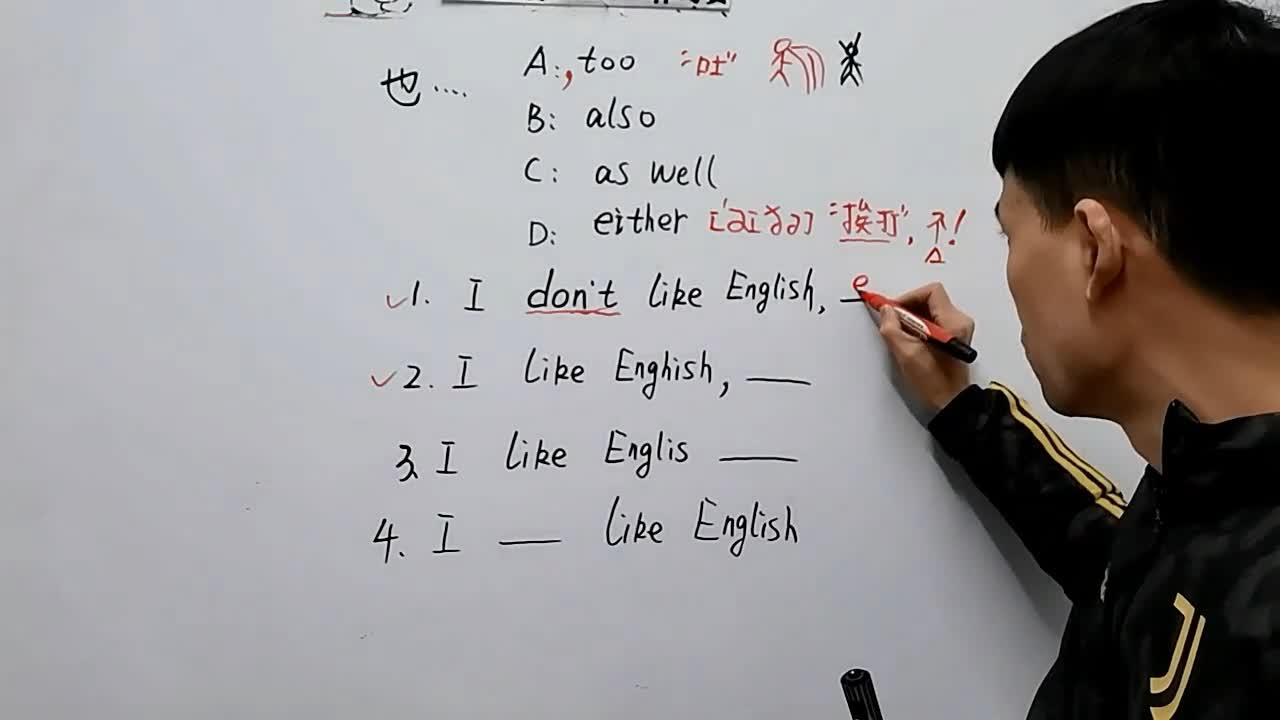 也....
A: , too "吐"
B: also
C: as well
D: either ['aɪðə] "挨打", 不!
✓1. I don't like English, e
✓2. I like Enghish, ___
3. I like Englis ___
4. I ___ like English